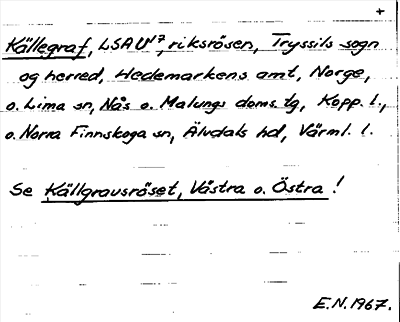 +
Källegraf, LSAU17, riksrösen, Tryssils sogn
og herred, Hedemarkens amt, Norge,
o. Lima sn, Nås o. Malungs doms tg, Kopp. l.,
o. Norra Finnskoga sn, Älvdals hd, Värml. l.
Se Källgravsröset, Västra o. Östra!
E.N. 1967.